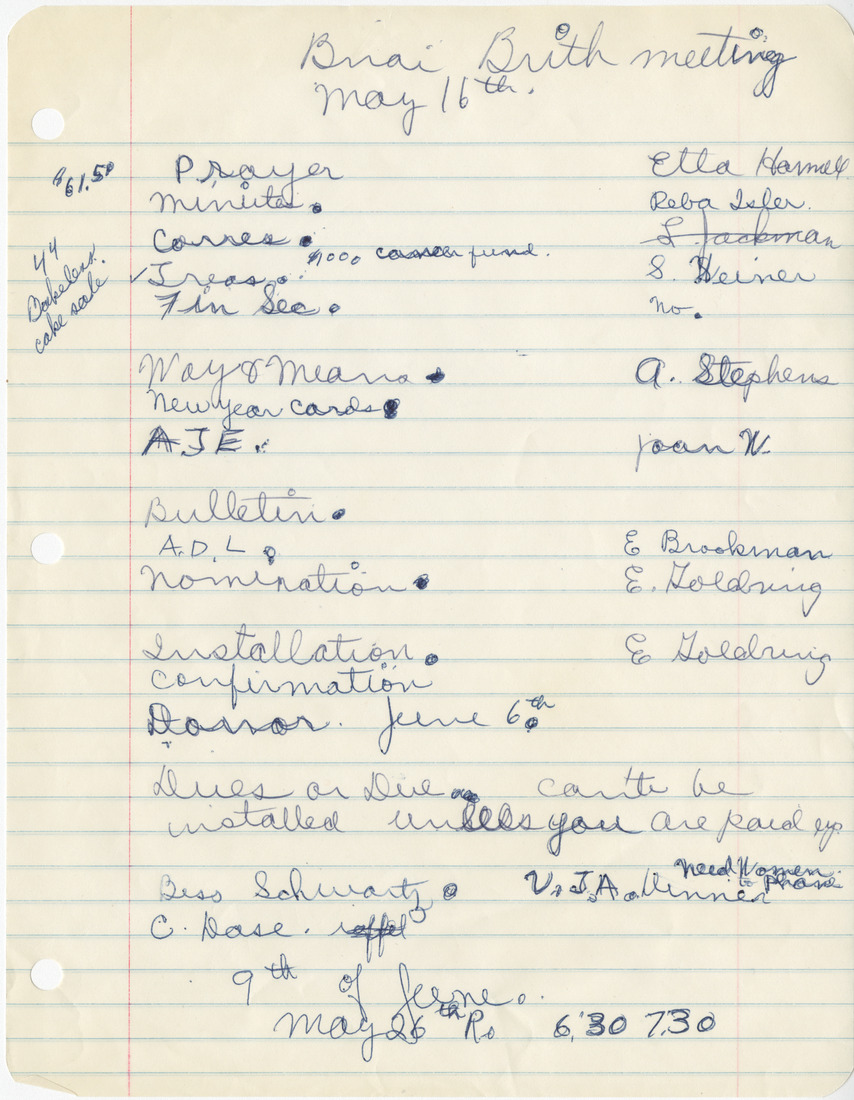 Bnai Brith meeting
May 16th.
$61.50
Prayer Etta Hamel
Minutes. Reba Isler.
Corres. L. Jackman
44
Bakeless.
cake sale
$1000 cancer fund.
✓ Treas. S. Weiner
Fin Sec. no.
Way & Means. A. Stephens
New year cards.
AJE. Joan W.
Bulletin.
A.D.L. E Brookman
Nomination. E. Goldring
Installation. E Goldring
Confirmation
Donor. June 6th.
Dues or Due. can't be
installed unless you are paid up
Need Women
to phone
Bess Schwartz. U.J.A. Dinner
C. Dose. raffel
9th of June.
May 26th R. 6,30 7.30